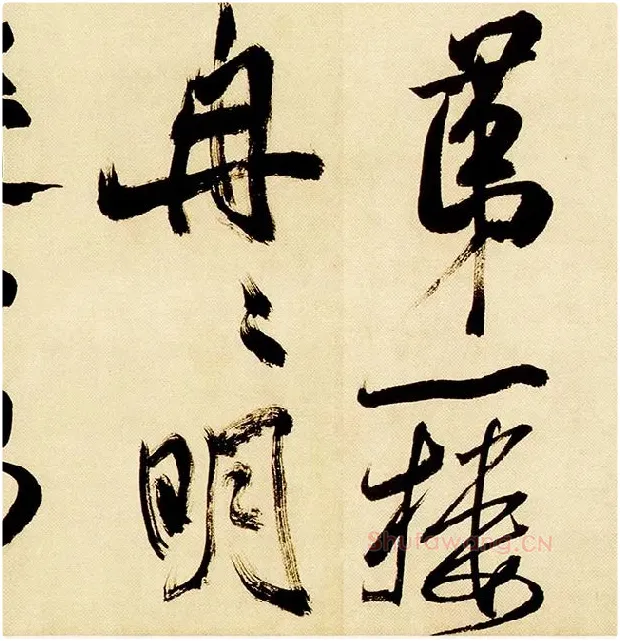 第一樓
冉〻明
Shufawang.CN